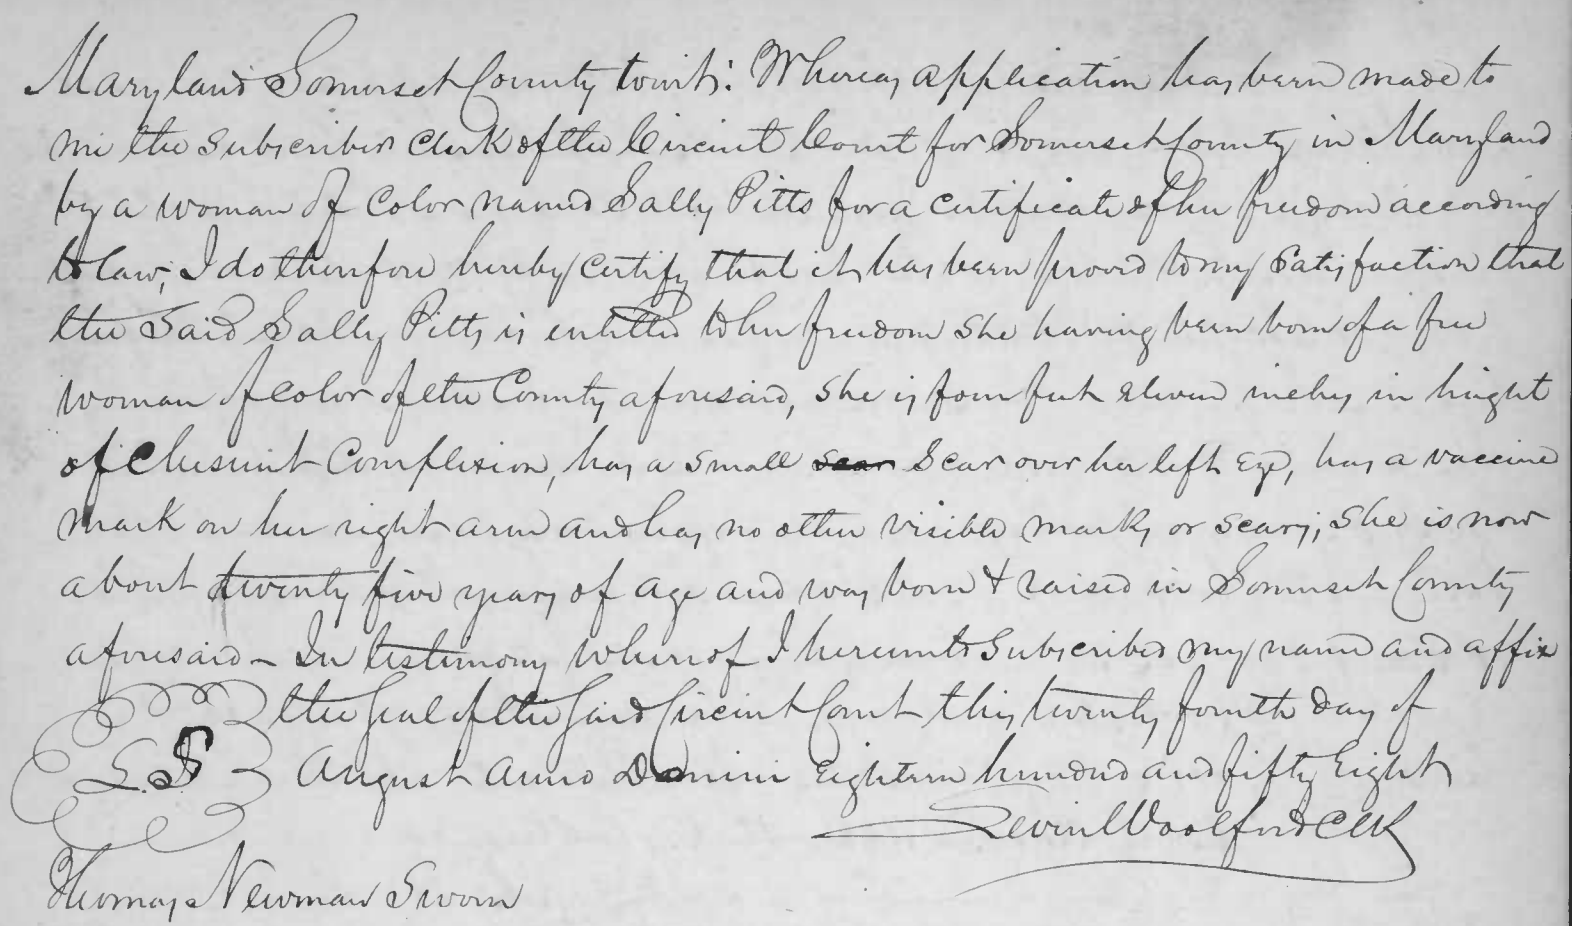 Maryland Somerset County towit: Whereas application has been made to
me the subscriber Clerk of the Circuit Court for Somerset County in Maryland
by a woman of Color named Sally Pitts for a certificate of her freedom according
to law, I do therefore hereby certify that it has been proved to my satisfaction that
the said Sally Pitts is entitled to her freedom she having been born of a free
woman of color of the County aforesaid, she is four feet eleven inches in hight
of Chesnut Complexion, has a small scar Scar over her left eye, has a vaccine
mark on her right arm and has no other visible marks or scars; she is now
about twenty five years of age and was born & raised in Somerset County
aforesaid - In testimony whereof I hereunto subscribed my name and affix
the seal of the said Circuit Court this twenty fourth day of
L.S. August Anno Domini Eighteen hundred and fifty Eight
Levin Woolford Clk
Thomas Newman Sworn